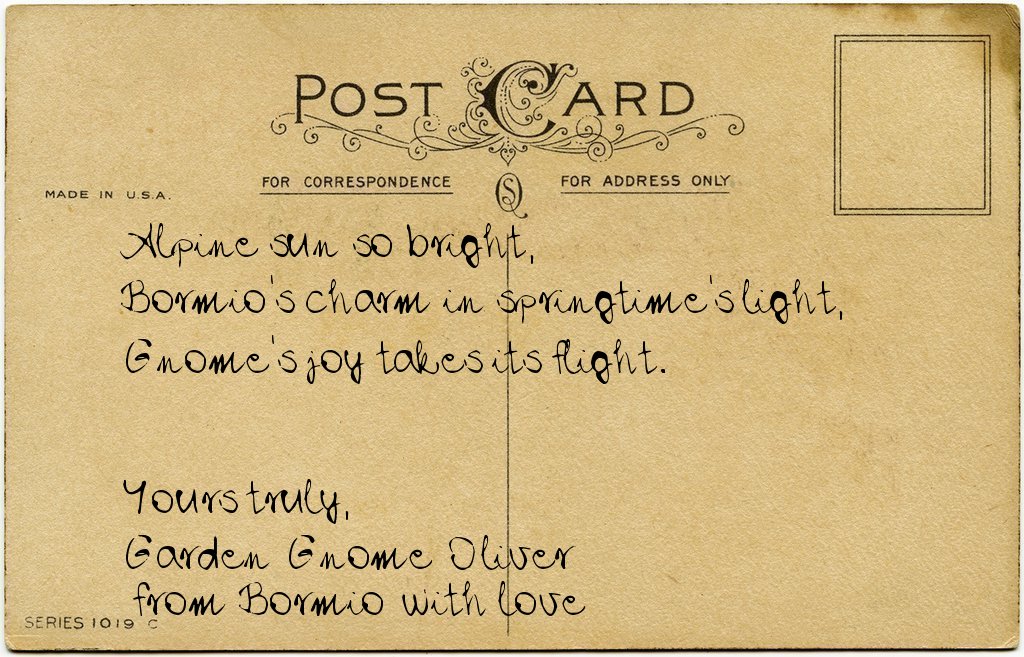 POST CARD
FOR CORRESPONDENCE
FOR ADDRESS ONLY
MADE IN U.S.A.
Alpine sun so bright,
Bormio's charm in springtime's light,
Gnome's joy takes its flight.
Yours truly,
Garden Gnome Oliver
from Bormio with love
SERIES 1019 C